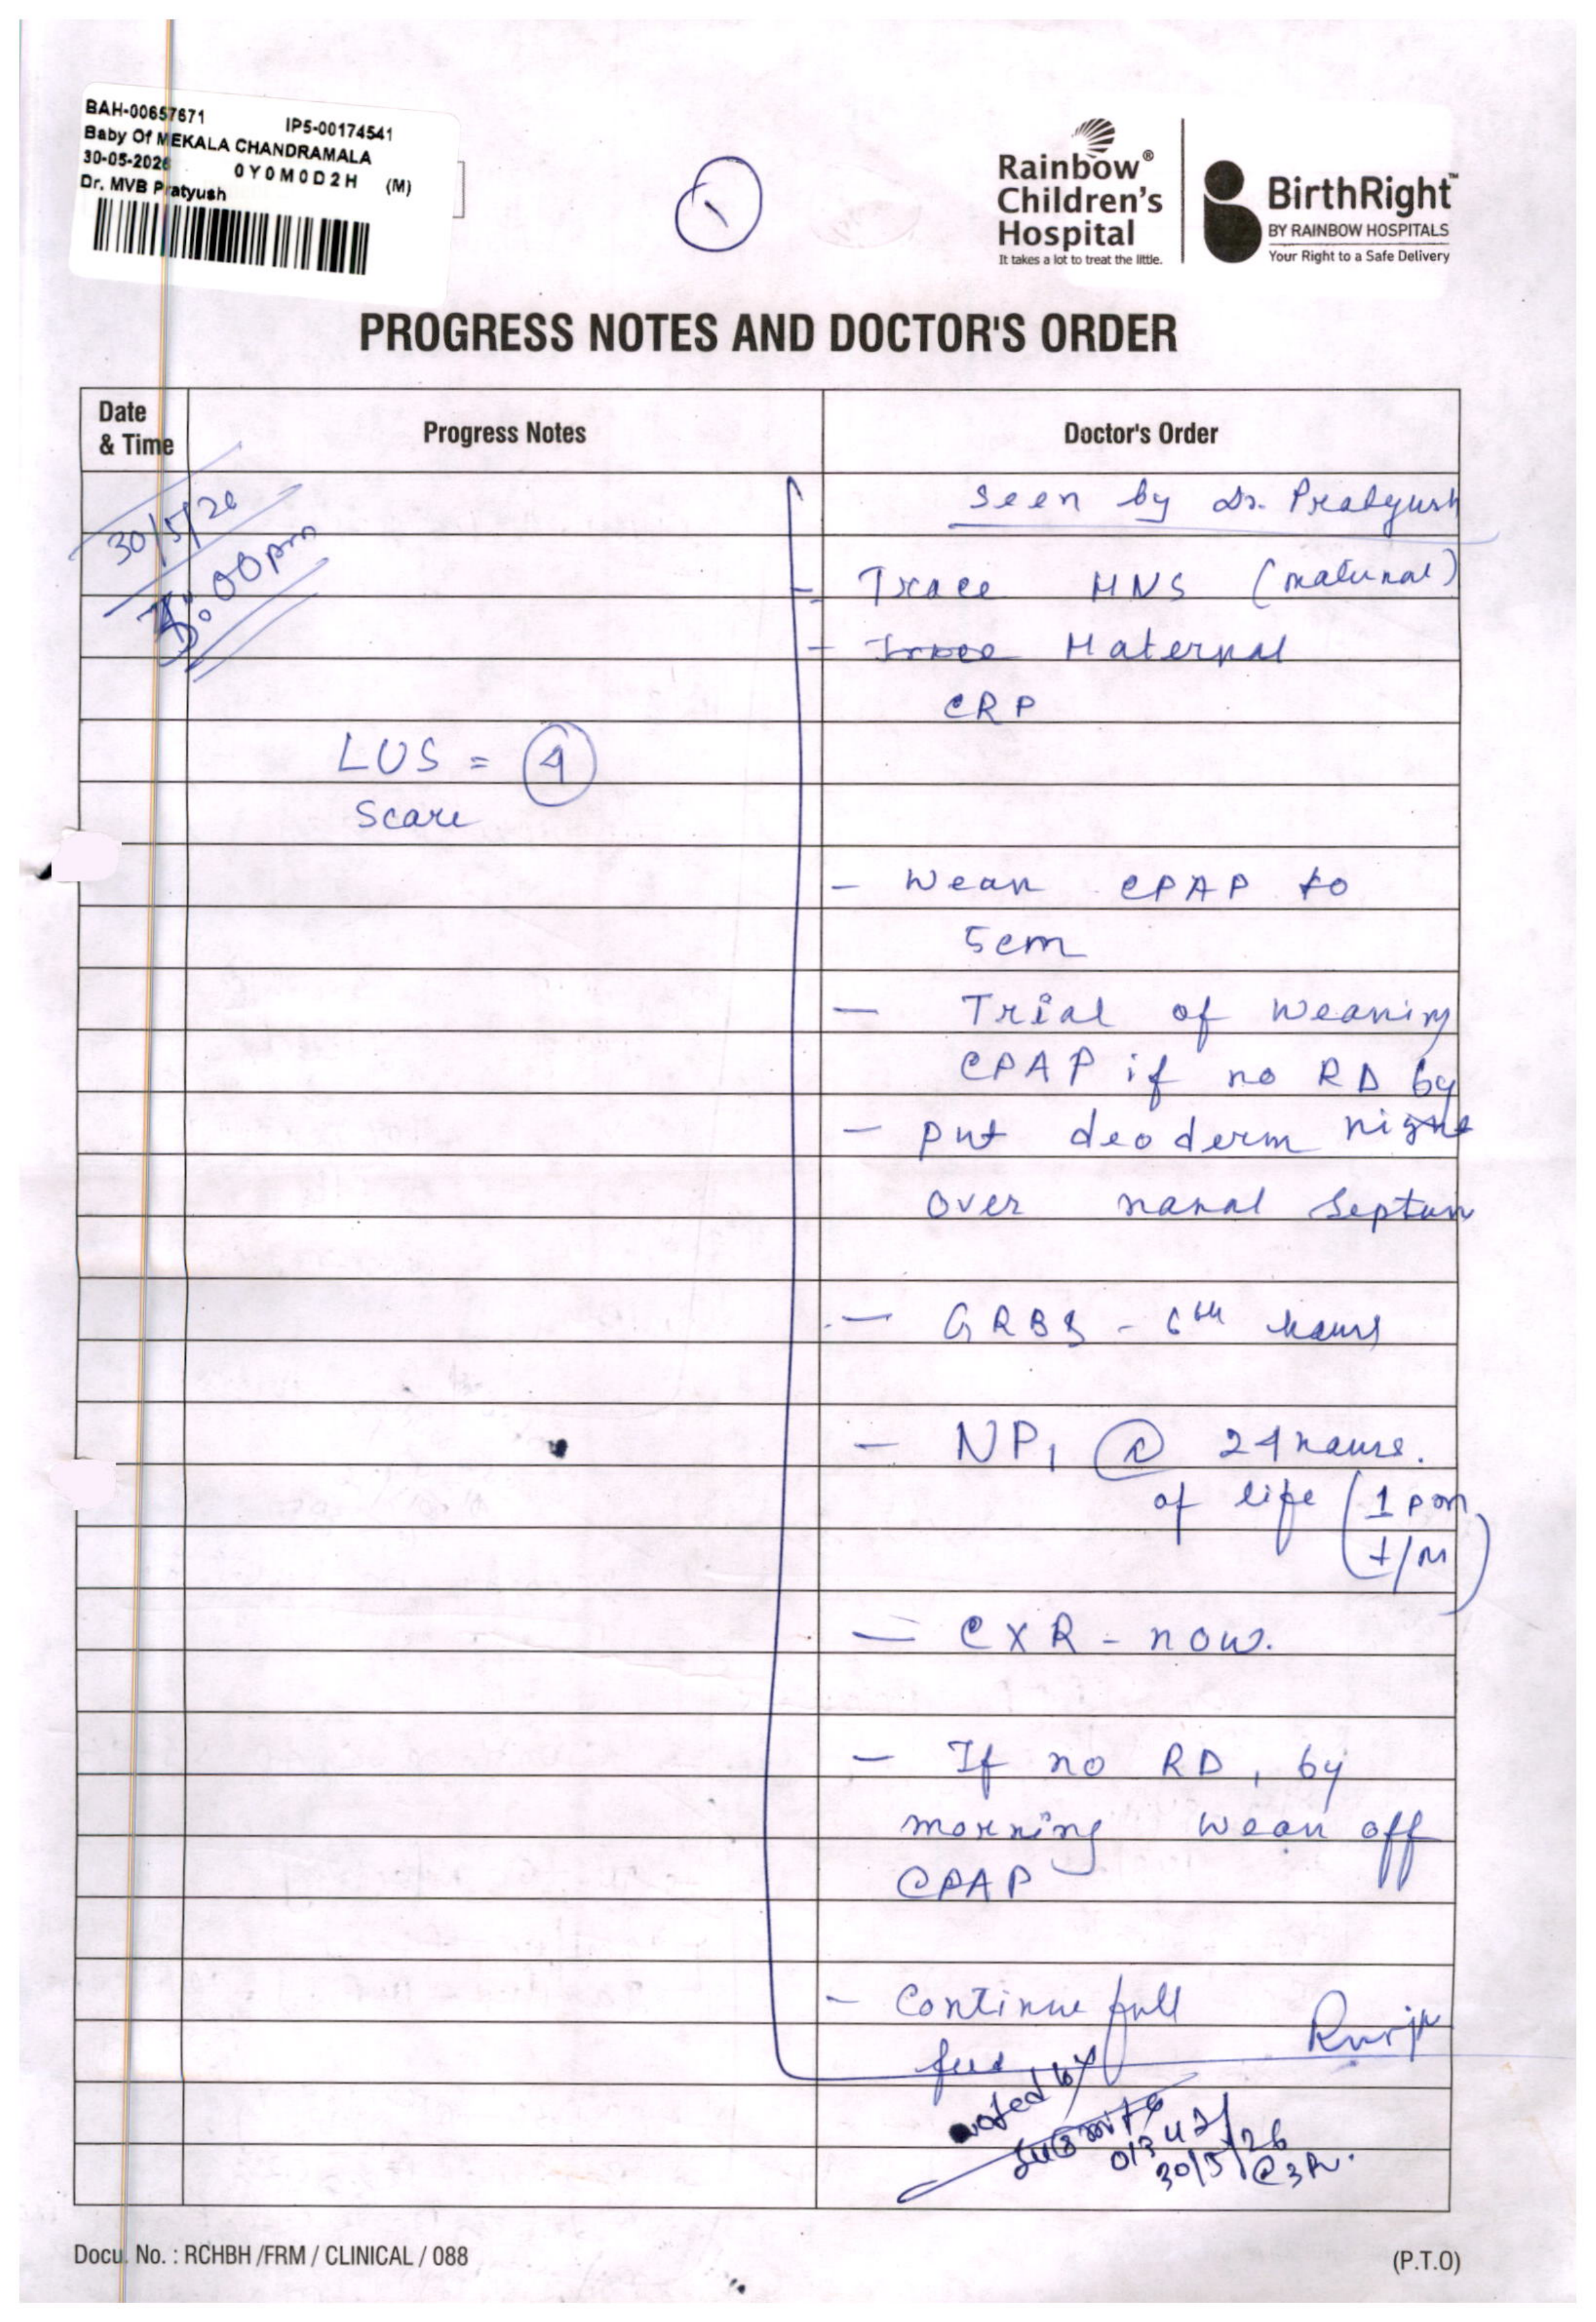 BAH-00657671 IP5-00174541
Baby Of MEKALA CHANDRAMALA
30-05-2026 0Y0M0D2H (M)
Dr. MVB Pratyush
1
Rainbow®
Children's
Hospital
It takes a lot to treat the little.
BirthRight™
BY RAINBOW HOSPITALS
Your Right to a Safe Delivery
PROGRESS NOTES AND DOCTOR'S ORDER
Date & Time
Progress Notes
Doctor's Order
30/5/26
3:00pm
seen by Dr. Pratyush
- Trace HNS (maternal)
- Trace Maternal
CRP
LUS = 4
Score
- Wean CPAP to
5cm
- Trial of weaning
CPAP if no RD by
night
- put deoderm
over nasal septum
- GRBS - 6th hours
- NP1 @ 24 hours.
of life (1 pm
1/m)
- CXR - now.
- If no RD, by
morning wean off
CPAP
- Continue full
feed
noted by
30/5/26
@3P.
Docu. No. : RCHBH /FRM / CLINICAL / 088
(P.T.O)